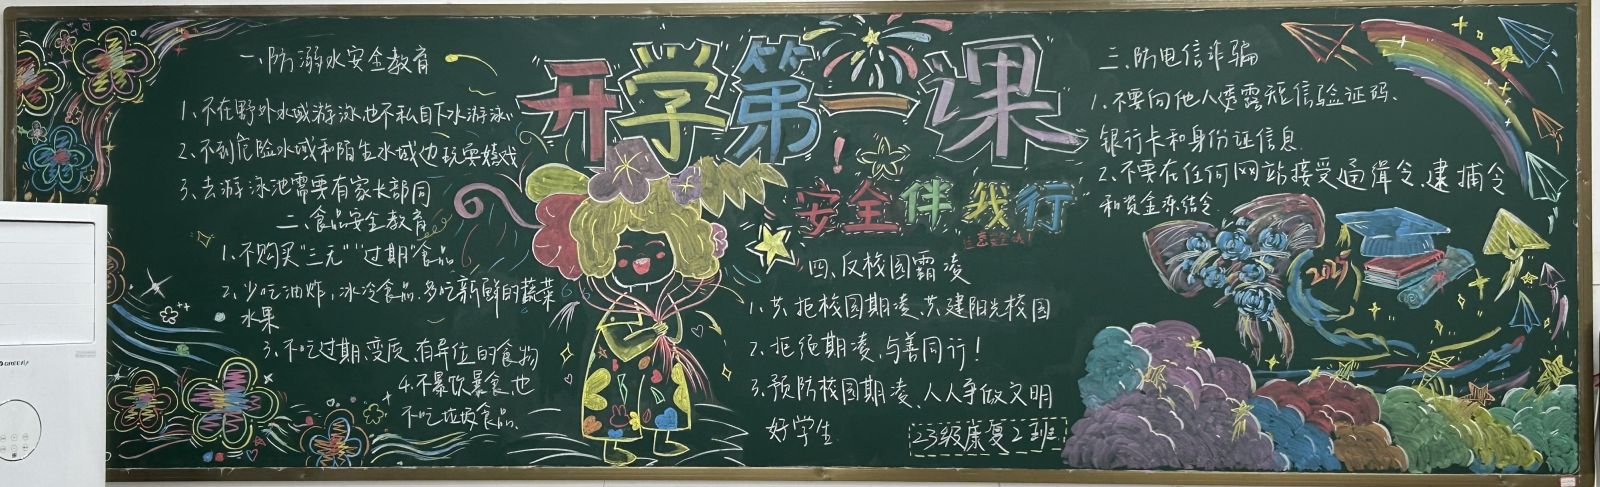 一、防溺水安全教育
1、不在野外水域游泳也不私自下水游泳
2、不到危险水域和陌生水域边玩耍嬉戏
3、去游泳池需要有家长部同
二、食品安全教育
1、不购买"三元""过期"食品
2、少吃油炸，冰冷食品，多吃新鲜的蔬菜
水果
3、不吃过期、变质、有异位的食物
4、不暴饮暴食，也
不吃垃圾食品、
开学第一课
安全伴我行
四、反校园霸凌
1、共拒校园期凌、共建阳光校园
2、拒绝期凌，与善同行！
3、预防校园期凌、人人争做文明
好学生
23级康复2班
三、防电信诈骗
1、不要向他人透露短信验证码、
银行卡和身份证信息
2、不要在任何网站接受通缉令、逮捕令
和资金冻结令
GREE